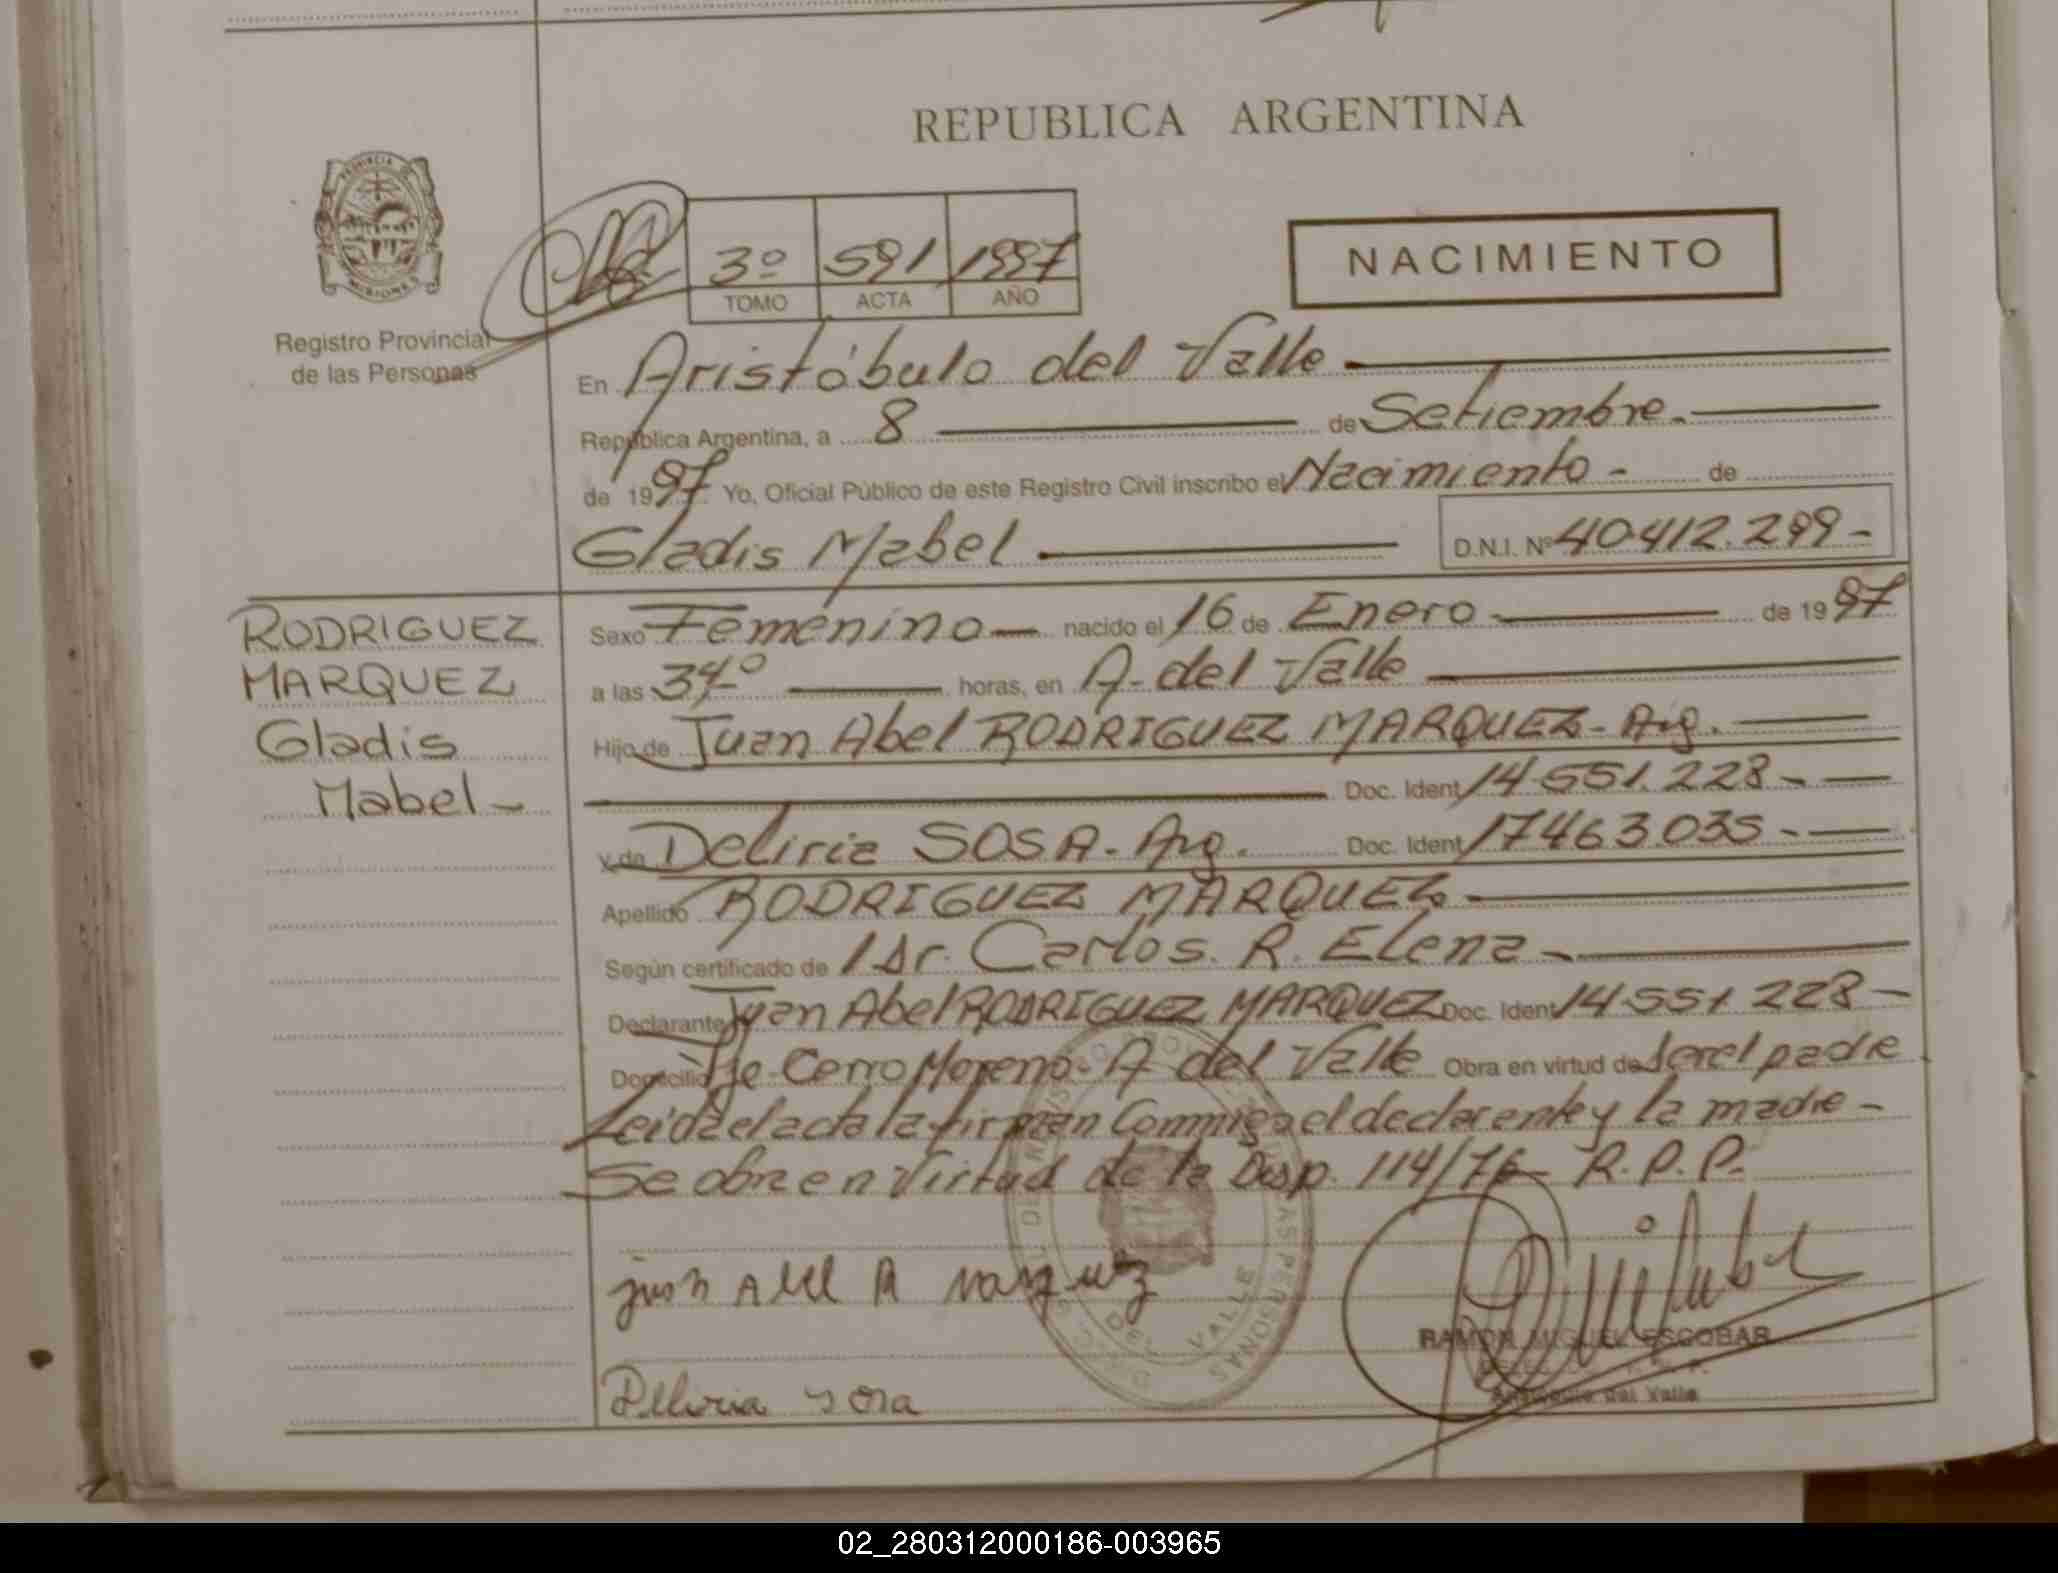 REPUBLICA ARGENTINA
PROVINCIA DE MISIONES
Registro Provincial
de las Personas
3º 591 1997
TOMO ACTA AÑO
NACIMIENTO
En Aristóbulo del Valle
República Argentina, a 8 de Setiembre.
de 1997 Yo, Oficial Público de este Registro Civil inscribo el Nacimiento - de
Gladis Mabel D.N.I. Nº 40.412.299-
RODRIGUEZ
MARQUEZ
Gladis
Mabel-
Sexo Femenino nacido el 16 de Enero de 1997
a las horas, en A. del Valle
Hijo de Juan Abel RODRIGUEZ MARQUEZ- Arg.
Doc. Ident 14.551.228-
y de Deliria SOSA- Arg. Doc. Ident 17.463.035-
Apellido RODRIGUEZ MARQUEZ
Según certificado de Dr. Carlos. R. Elena-
Declarante Juan Abel RODRIGUEZ MARQUEZ Doc. Ident 14.551.228-
Domicilio Pje- Cerro Moreno- A del Valle Obra en virtud de Ser el padre
Leida el acta la firman Conmigo el declarante y la madre-
Se obra en Virtud de la Disp. 114/76- R.P.P.
juan Abel R Marquez
DEL VALLE
RAMON MIGUEL ESCOBAR
Aristóbulo del Valle
Deliria Sosa
02_280312000186-003965